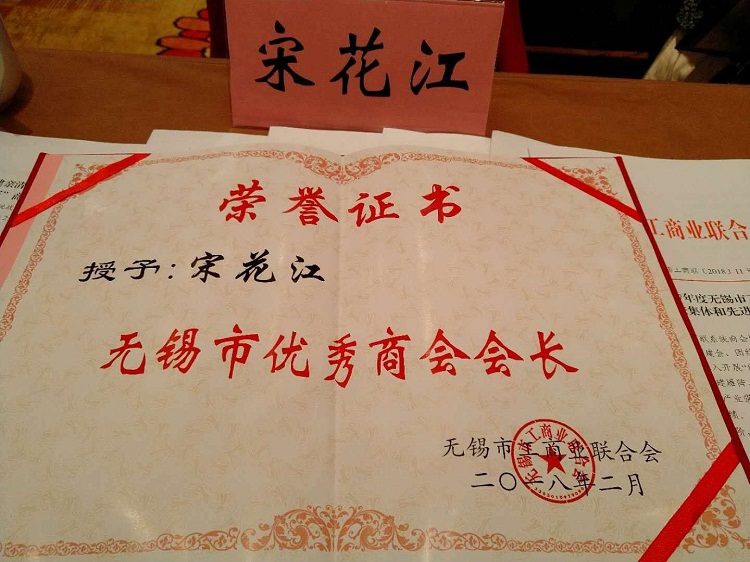 宋花江
荣誉证书
授予:宋花江
无锡市优秀商会会长
无锡市工商业联合会
二〇一八年二月
无锡市工商业联合会
工商业联合
〔2018〕11
年度无锡市
集体和先进